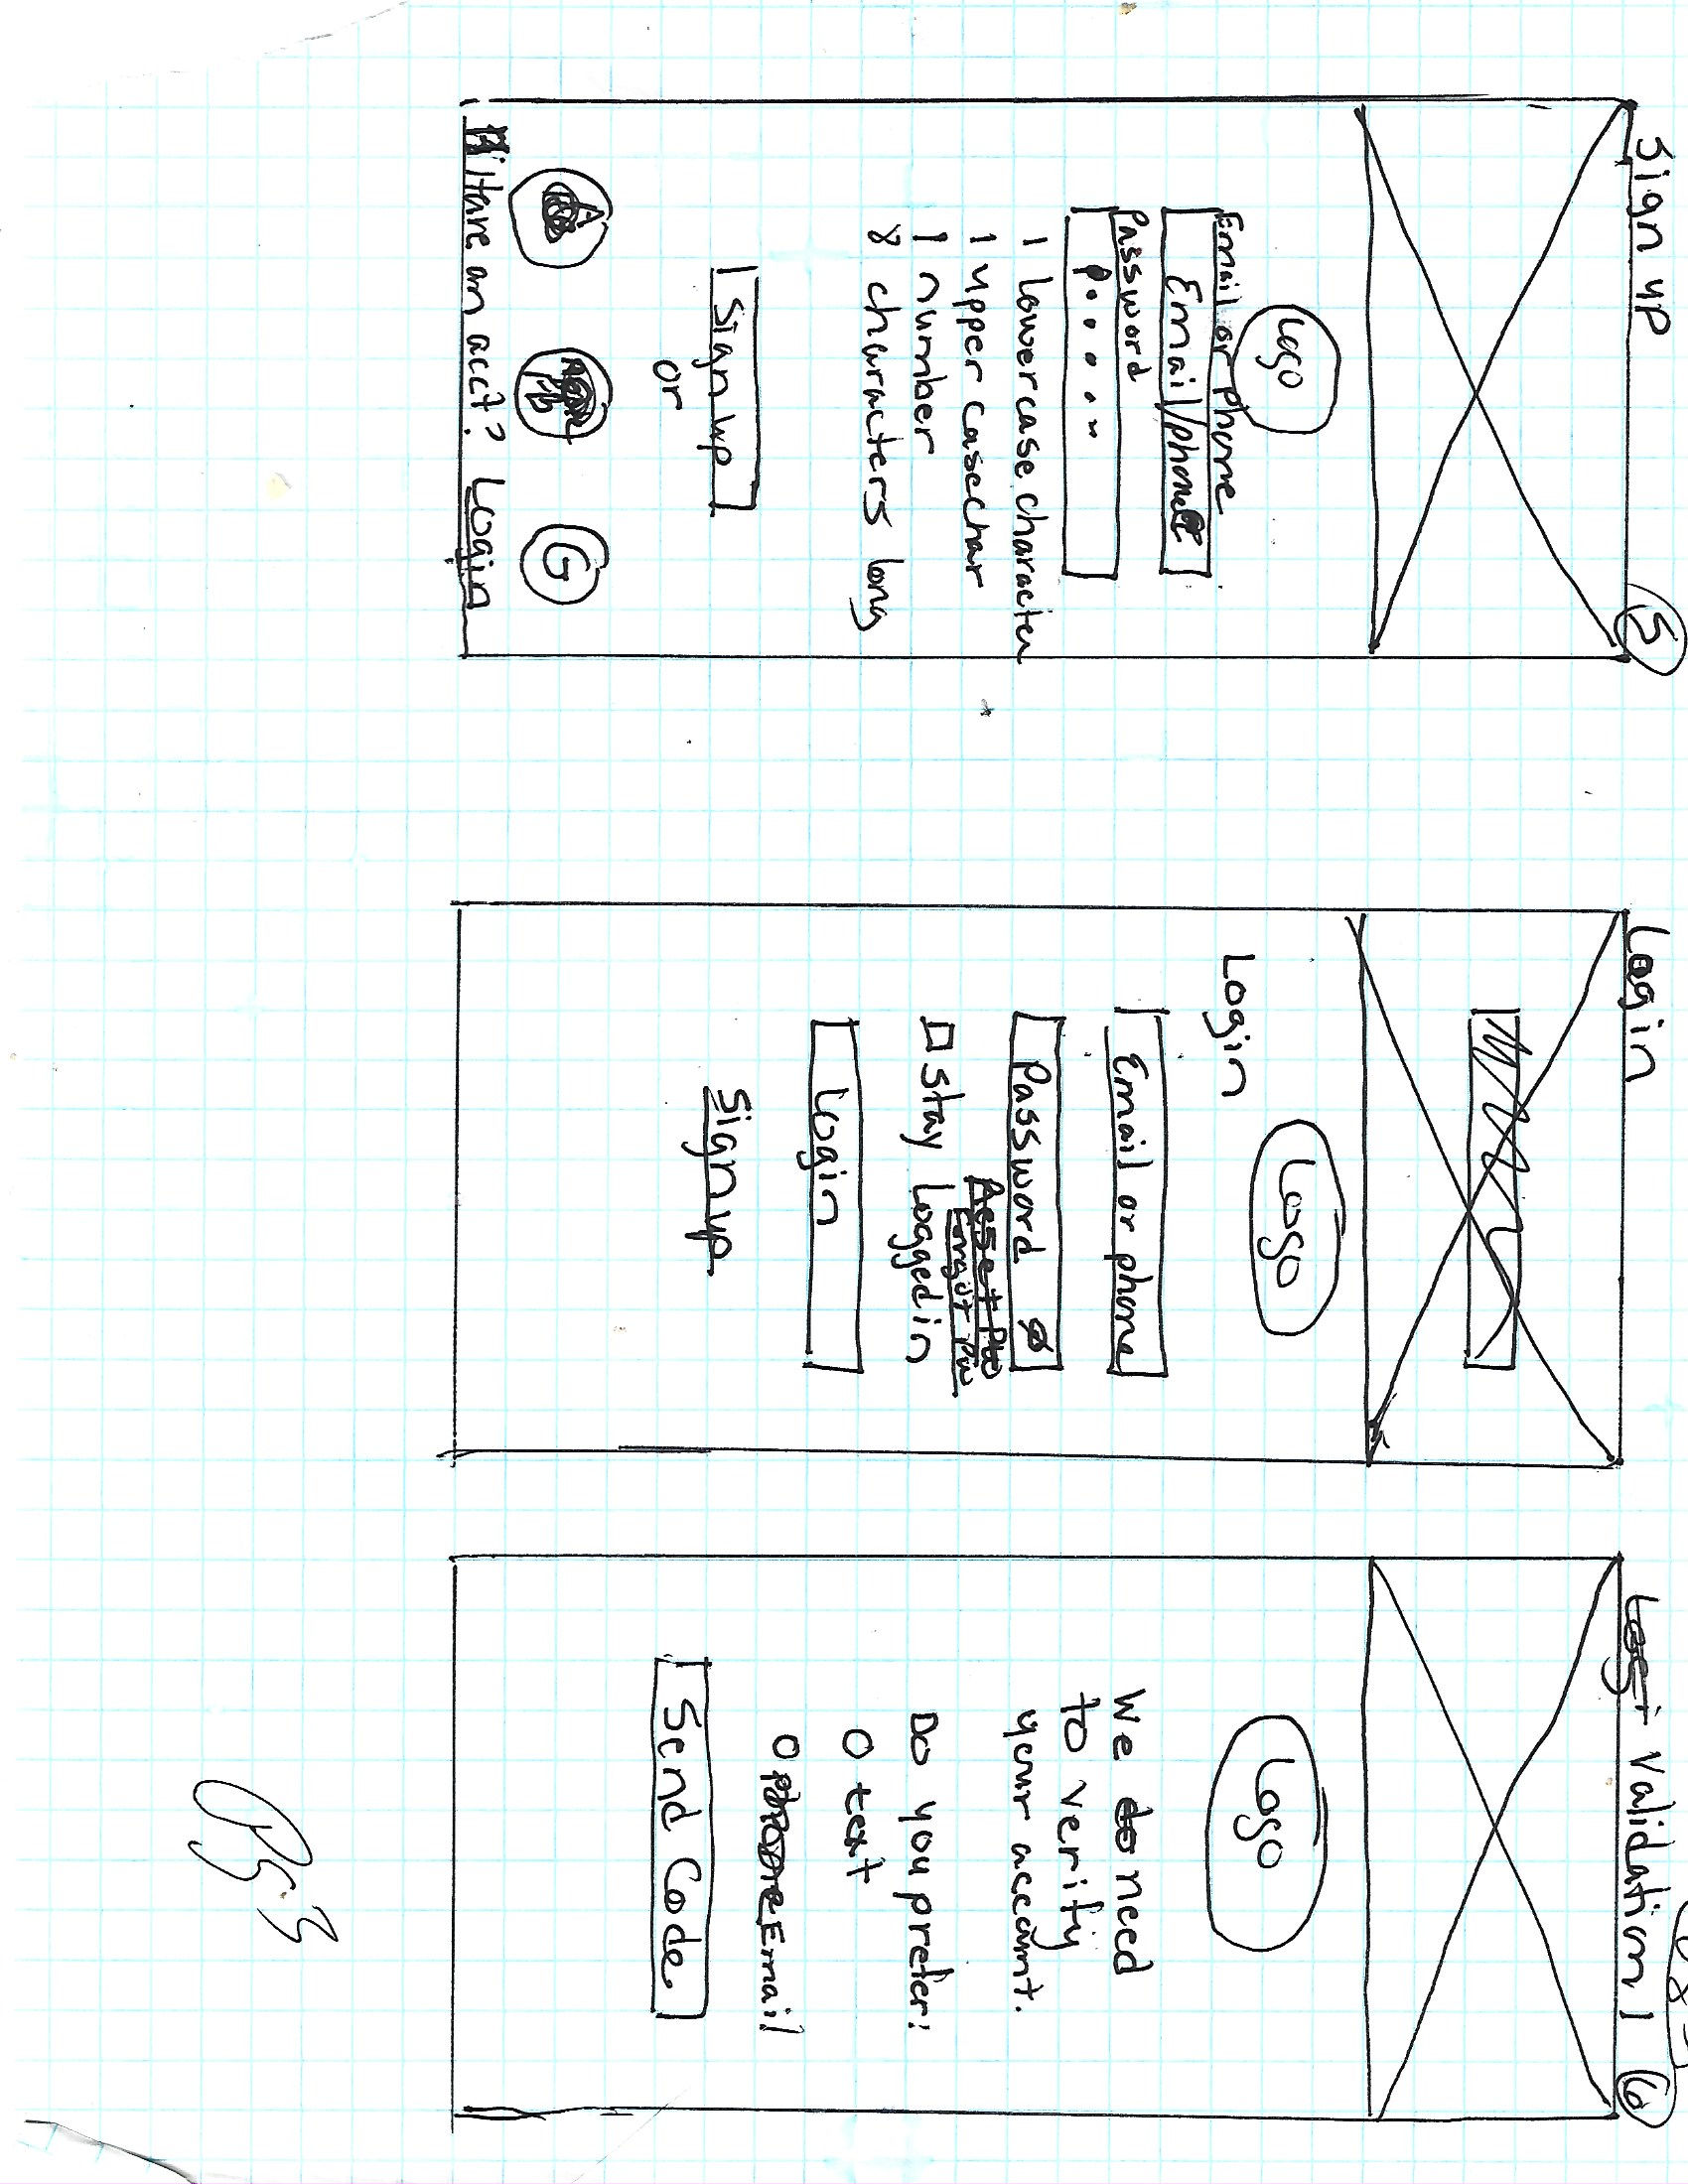 Sign up
5
Logo
Email or phone
Email/phone
Password
1 lowercase character
1 upper case char
1 number
8 characters long
Sign up
or
A
fb
G
Have an acct? Login
Login
Logo
Login
Email or phone
Password
Reset PW
Forgot PW
Stay Logged in
Login
Sign up
Validation 1
6
Logo
We need
to verify
your account.
Do you prefer:
text
Email
Send Code
PS. 3